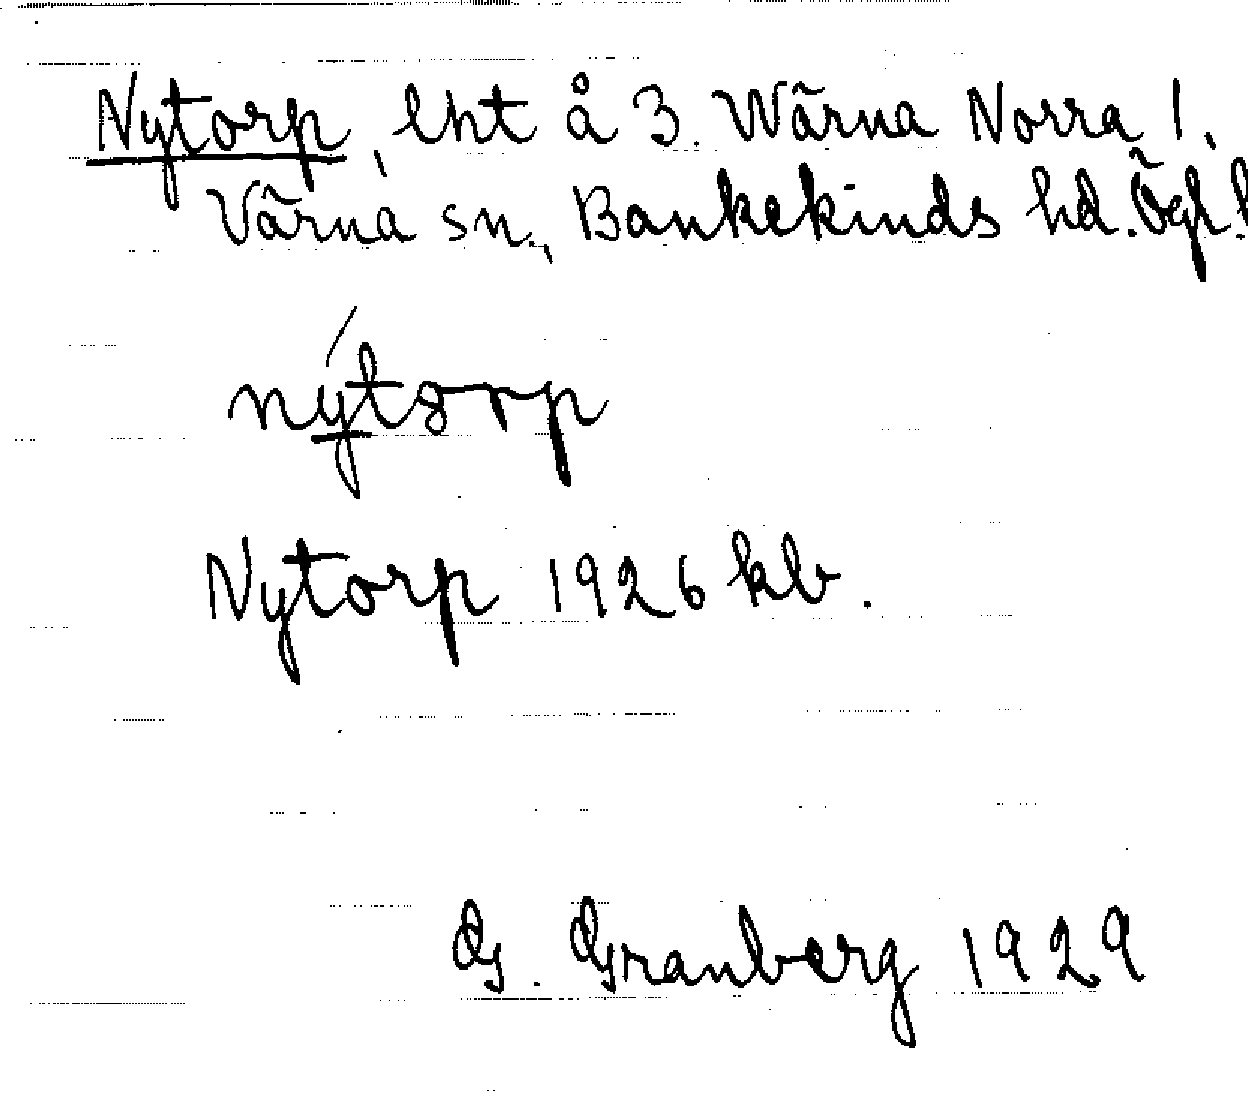 Nytorp, lht å 3. Wärna Norra 1,
Värna sn., Bankekinds hd. Ögl.
nýtorp
Nytorp 1926 kb.
G. Granberg 1929